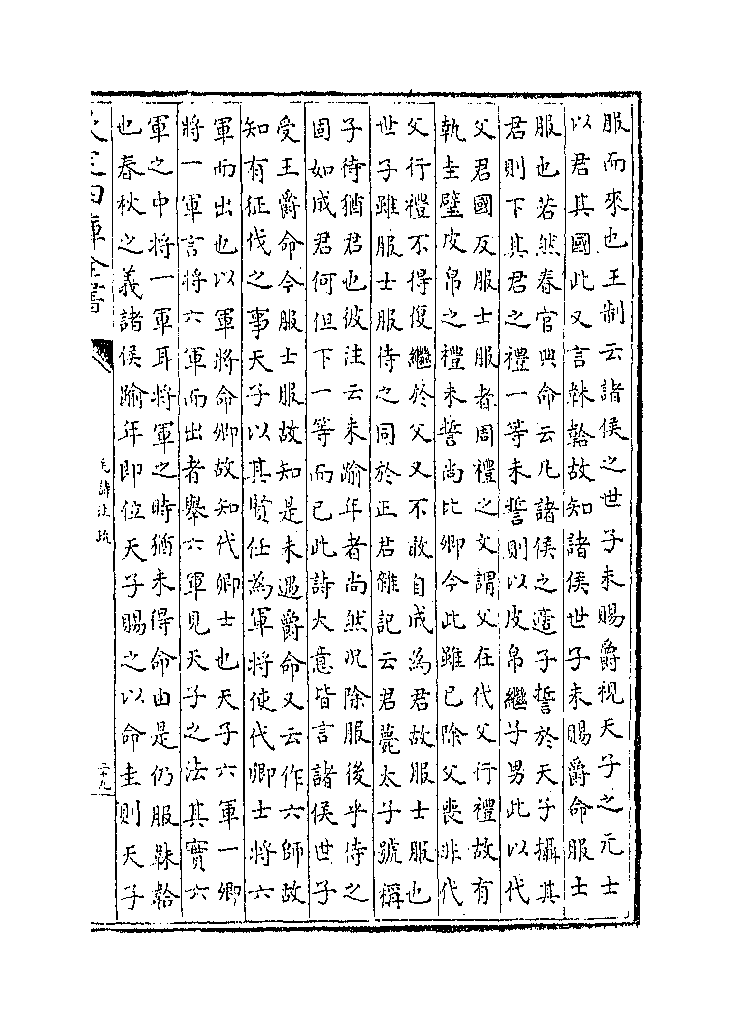 服而來也王制云諸侯之世子未賜爵視天子之元士
以君其國此又言韎韐故知諸侯世子未賜爵命服士
服也若然春官典命云凡諸侯之適子誓於天子攝其
君則下其君之禮一等未誓則以皮帛繼子男此以代
父君國反服士服者周禮之文謂父在代父行禮故有
執圭璧皮帛之禮未誓尚比卿今此雖已除父喪非代
父行禮不得復繼於父又不敢自成為君故服士服也
世子雖服士服待之同於正君雜記云君薨太子號稱
子待猶君也彼注云未踰年者尚然况除服後乎待之
固如成君何但下一等而已此詩大意皆言諸侯世子
受王爵命今服士服故知是未遇爵命又云作六師故
知有征伐之事天子以其賢任為軍將使代卿士將六
軍而出也以軍將命卿故知代卿士也天子六軍一卿
將一軍言將六軍而出者舉六軍見天子之法其實六
軍之中將一軍耳將軍之時猶未得命由是仍服韎韐
也春秋之義諸侯踰年即位天子賜之以命圭則天子
欽定四庫全書
毛詩注疏
二十九